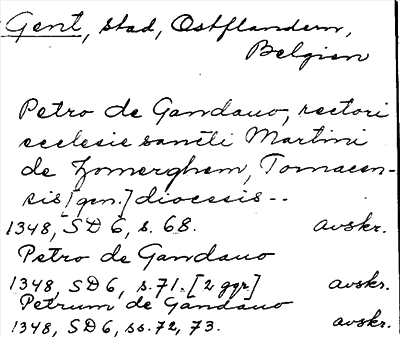 Gent, stad, Ostflandern,
Belgien
Petro de Gandauo, rectori
ecclesie sancti Martini
de Zomerghem, Tornacen-
sis [gen.] diocesis--
1348, SD 6, s. 68. avskr.
Petro de Gandauo
1348, SD 6, s. 71. [2 ggr] avskr.
Petrum de Gandauo
1348, SD 6, ss. 72, 73. avskr.